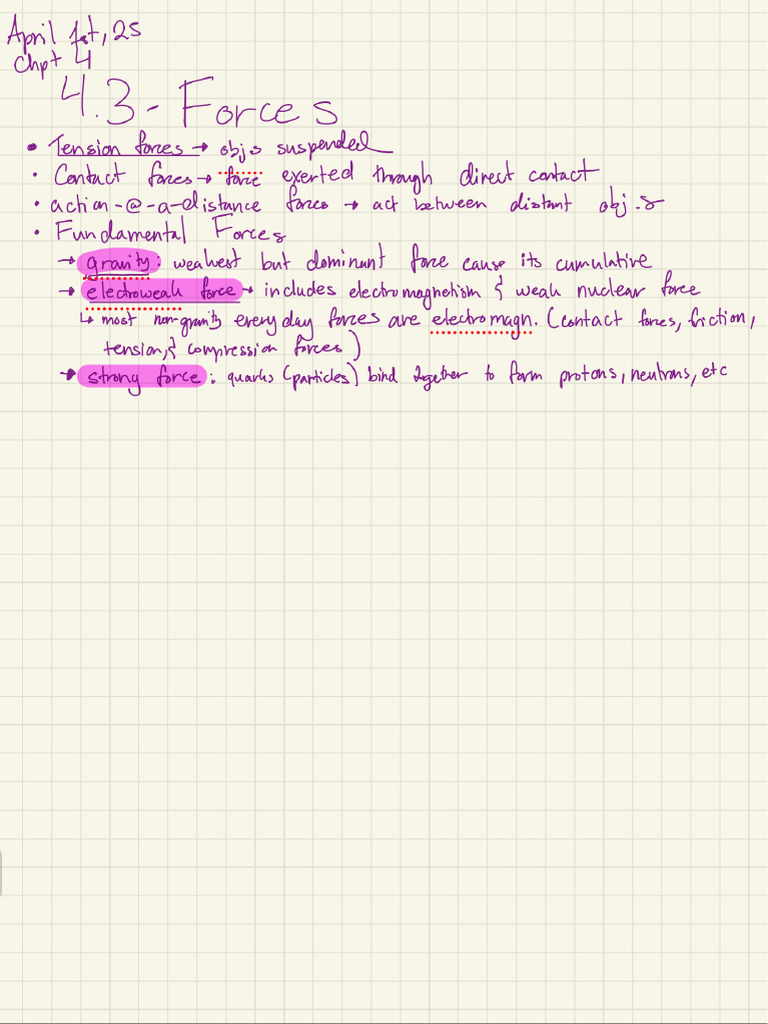 April 1st, 25
Chpt 4
4.3 - Forces
• Tension forces → objs suspended
• Contact forces → force exerted through direct contact
• action-@-a-distance forces → act between distant obj.s
• Fundamental Forces
→ gravity: weakest but dominant force cause its cumulative
→ electroweak force → includes electromagnetism & weak nuclear force
↳ most non-gravity everyday forces are electromagn. (contact forces, friction,
tension, & compression forces)
→ strong force: quarks (particles) bind together to form protons, neutrons, etc